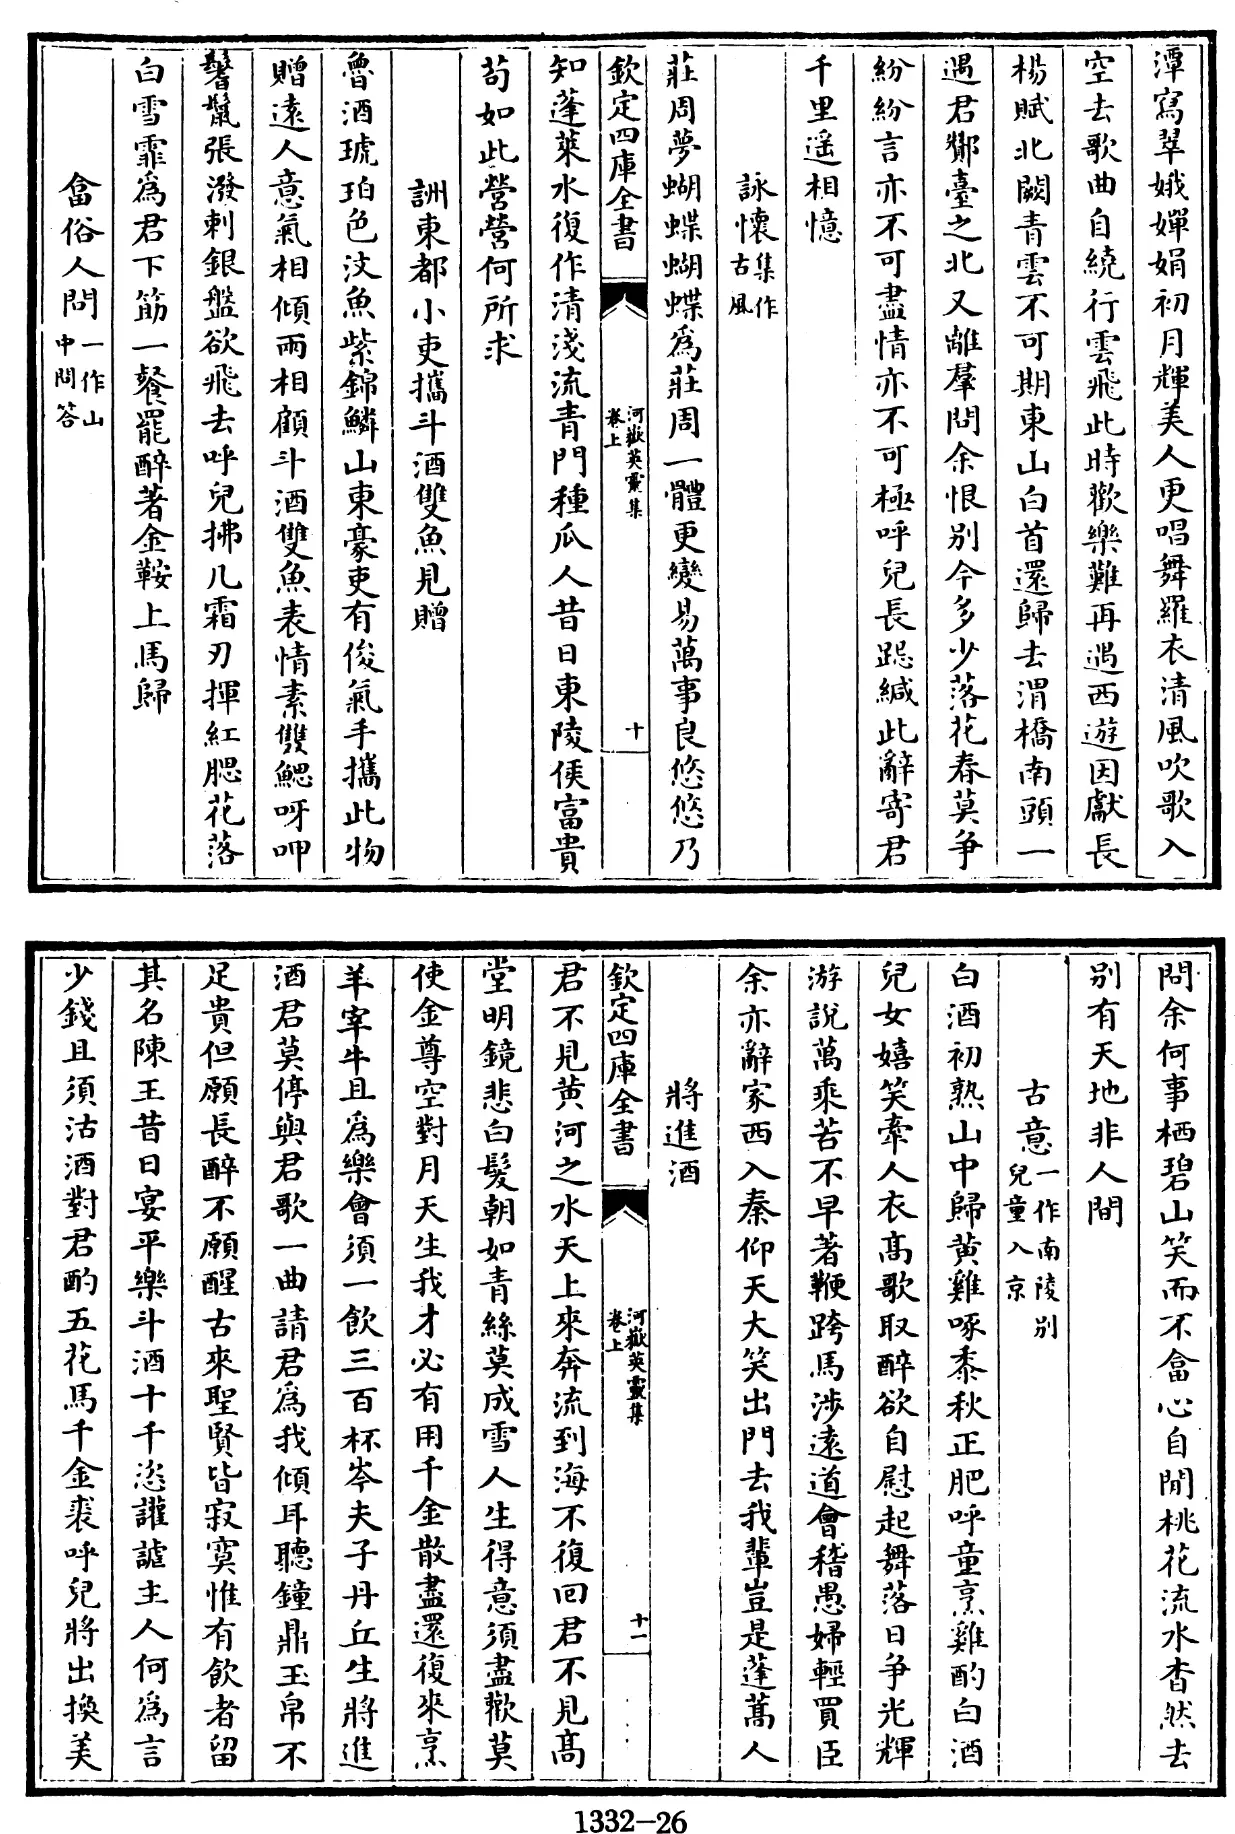 潭寫翠娥嬋娟初月輝美人更唱舞羅衣清風吹歌入
空去歌曲自繞行雲飛此時歡樂難再遇西遊因獻長
楊賦北闕青雲不可期東山白首還歸去渭橋南頭一
遇君酇臺之北又離羣問余恨别今多少落花春莫争
紛紛言亦不可盡情亦不可極呼兒長跽緘此辭寄君
千里遥相憶
詠懷集作古風
莊周夢蝴蝶蝴蝶為莊周一體更變易萬事良悠悠乃
欽定四庫全書
河嶽英靈集
卷上
十
知蓬萊水復作清淺流青門種瓜人昔日東陵侯富貴
苟如此營營何所求
詶東都小吏攜斗酒雙魚見贈
魯酒琥珀色汶魚紫錦鱗山東豪吏有俊氣手攜此物
贈遠人意氣相傾兩相顧斗酒雙魚表情素雙鰓呀呷
鬐鬛張潑剌銀盤欲飛去呼兒拂几霜刃揮紅腮花落
白雪霏為君下筯一餐罷醉著金鞍上馬歸
畣俗人問一作山中問答
問余何事栖碧山笑而不畣心自閒桃花流水杳然去
别有天地非人間
古意一作南陵别兒童入京
白酒初熟山中歸黄雞啄黍秋正肥呼童烹雞酌白酒
兒女嬉笑牽人衣高歌取醉欲自慰起舞落日争光輝
游說萬乘苦不早著鞭跨馬涉遠道會稽愚婦輕買臣
余亦辭家西入秦仰天大笑出門去我輩豈是蓬蒿人
將進酒
欽定四庫全書
河嶽英靈集
卷上
十一
君不見黄河之水天上來奔流到海不復回君不見高
堂明鏡悲白髮朝如青絲莫成雪人生得意須盡歡莫
使金尊空對月天生我才必有用千金散盡還復來烹
羊宰牛且為樂會須一飲三百杯岑夫子丹丘生將進
酒君莫停與君歌一曲請君為我傾耳聽鐘鼎玉帛不
足貴但願長醉不願醒古來聖賢皆寂寞惟有飲者留
其名陳王昔日宴平樂斗酒十千恣讙謔主人何為言
少錢且須沽酒對君酌五花馬千金裘呼兒將出換美
1332-26